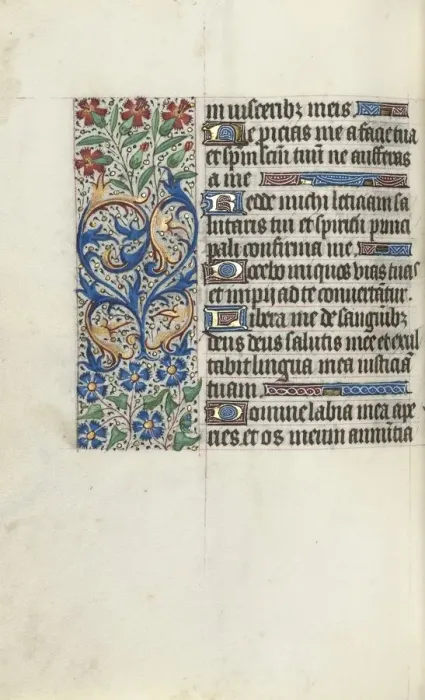 in visceribz meis
Ne p̱icias me a facie tua
et spm̄ sc̄m tuū ne aufferas
a me
Redde michi leticiam sa
lutaris tui et spiritu princi
pali confirma me
Docebo iniquos vias tuas
et impij ad te convertātur.
Libera me de sanguībz
deus deus salutis mee et exul
tabit lingua mea iusticiā
tuam
Domine labia mea ape
ries et os meum annūtia